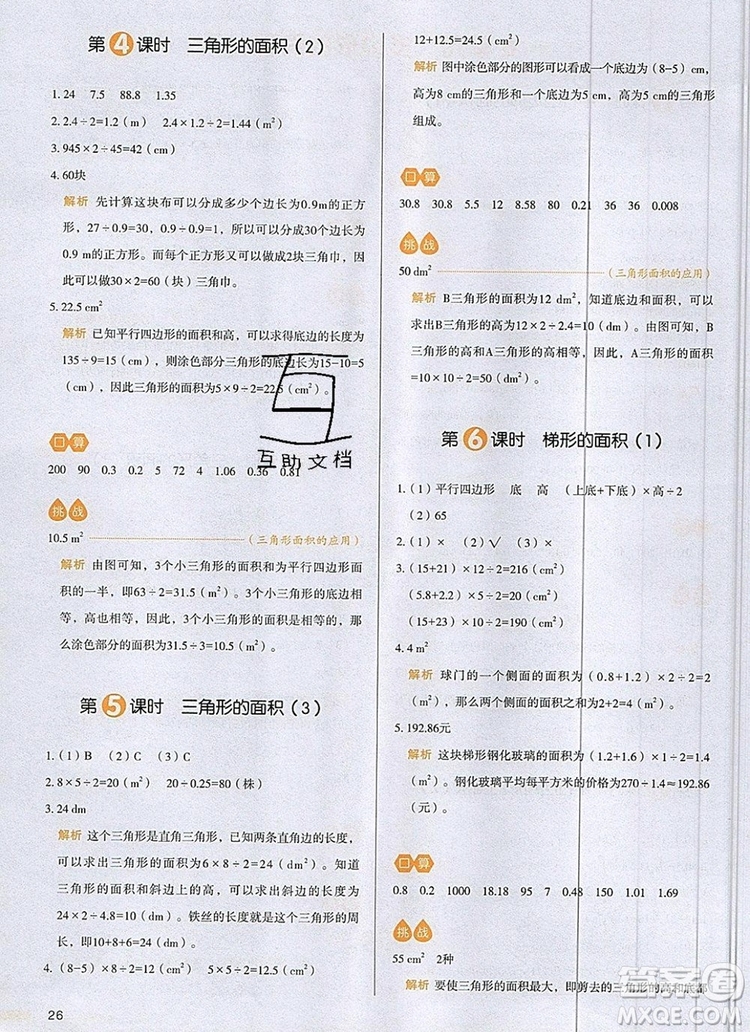 第4课时 三角形的面积(2)
1. 24 7.5 88.8 1.35
2. 2.4÷2=1.2(m) 2.4×1.2÷2=1.44(m²)
3. 945×2÷45=42(cm)
4. 60块
解析 先计算这块布可以分成多少个边长为0.9m的正方
形,27÷0.9=30,0.9÷0.9=1,所以可以分成30个边长为
0.9 m的正方形。而每个正方形又可以做成2块三角巾,
因此可以做30×2=60(块)三角巾。
5. 22.5 cm²
解析 已知平行四边形的面积和高,可以求得底边的长度为
135÷9=15(cm),则涂色部分三角形的底边长为15-10=5
(cm),因此三角形的面积为5×9÷2=22.5(cm²)。
口算
200 90 0.3 0.2 5 72 4 1.06 0.36 0.81
挑战
10.5 m² (三角形面积的应用)
解析 由图可知,3个小三角形的面积和为平行四边形面
积的一半,即63÷2=31.5(m²)。3个小三角形的底边相
等,高也相等,因此,3个小三角形的面积是相等的,那
么涂色部分的面积为31.5÷3=10.5(m²)。
第5课时 三角形的面积(3)
1.(1)B (2)C (3)C
2. 8×5÷2=20(m²) 20÷0.25=80(株)
3. 24 dm
解析 这个三角形是直角三角形,已知两条直角边的长度,
可以求出三角形的面积6×8÷2=24(dm²)。知道
三角形的面积和斜边上的高,可以求出斜边的长度为
24×2÷4.8=10(dm)。铁丝的长度就是三角形的周
长,即10+8+6=24(dm)。
4.(8-5)×8÷2=12(cm²) (8-5)×5÷2=12.5(cm²)
26
12+12.5=24.5(cm²)
解析 图中涂色部分的图形可以看成一个底边为(8-5)cm,
高为8 cm的三角形和一个底边为5 cm、高为5 cm的三角形
组成。
口算
30.8 30.8 5.5 12 580 80 0.21 36 36 0.008
挑战
50 dm² (三角形面积的应用)
解析 B三角形的面积为12 dm²,知道底边和面积,可以
求出B三角形的高为12×2÷2.4=10(dm)。由图可知,B
三角形的高和A三角形的高相等,因此,A三角形的面积
=10×10÷2=50(dm²)。
第6课时 梯形的面积(1)
1.(1)平行四边形 底 高 (上底+下底)×高÷2
(2)65
2.(1)× (2)√ (3)×
3.(15+21)×12÷2=216(m²)
(5.8+2.2)×5÷2=20(dm²)
(15+23)×10÷2=190(cm²)
4. 4 m²
解析 球门的一个侧面的面积为(0.8+1.2)×2÷2=2
(m²),则两个侧面的面积为2×2=4(m²)。
5. 192.86元
解析 这块梯形钢化玻璃的面积为(1.2+1.6)×1÷2=1.4
(m²)。钢化玻璃平均每平方米的价格为270÷1.4≈192.86
(元)。
口算
0.8 0.2 1000 18.18 95 7 0.48 1.95 1.01 1.69
挑战
55 cm² 2种
解析 要使三角形的面积最大,即剪去的三角形的高和底都
互助文档
答案圈
MXQE.COM